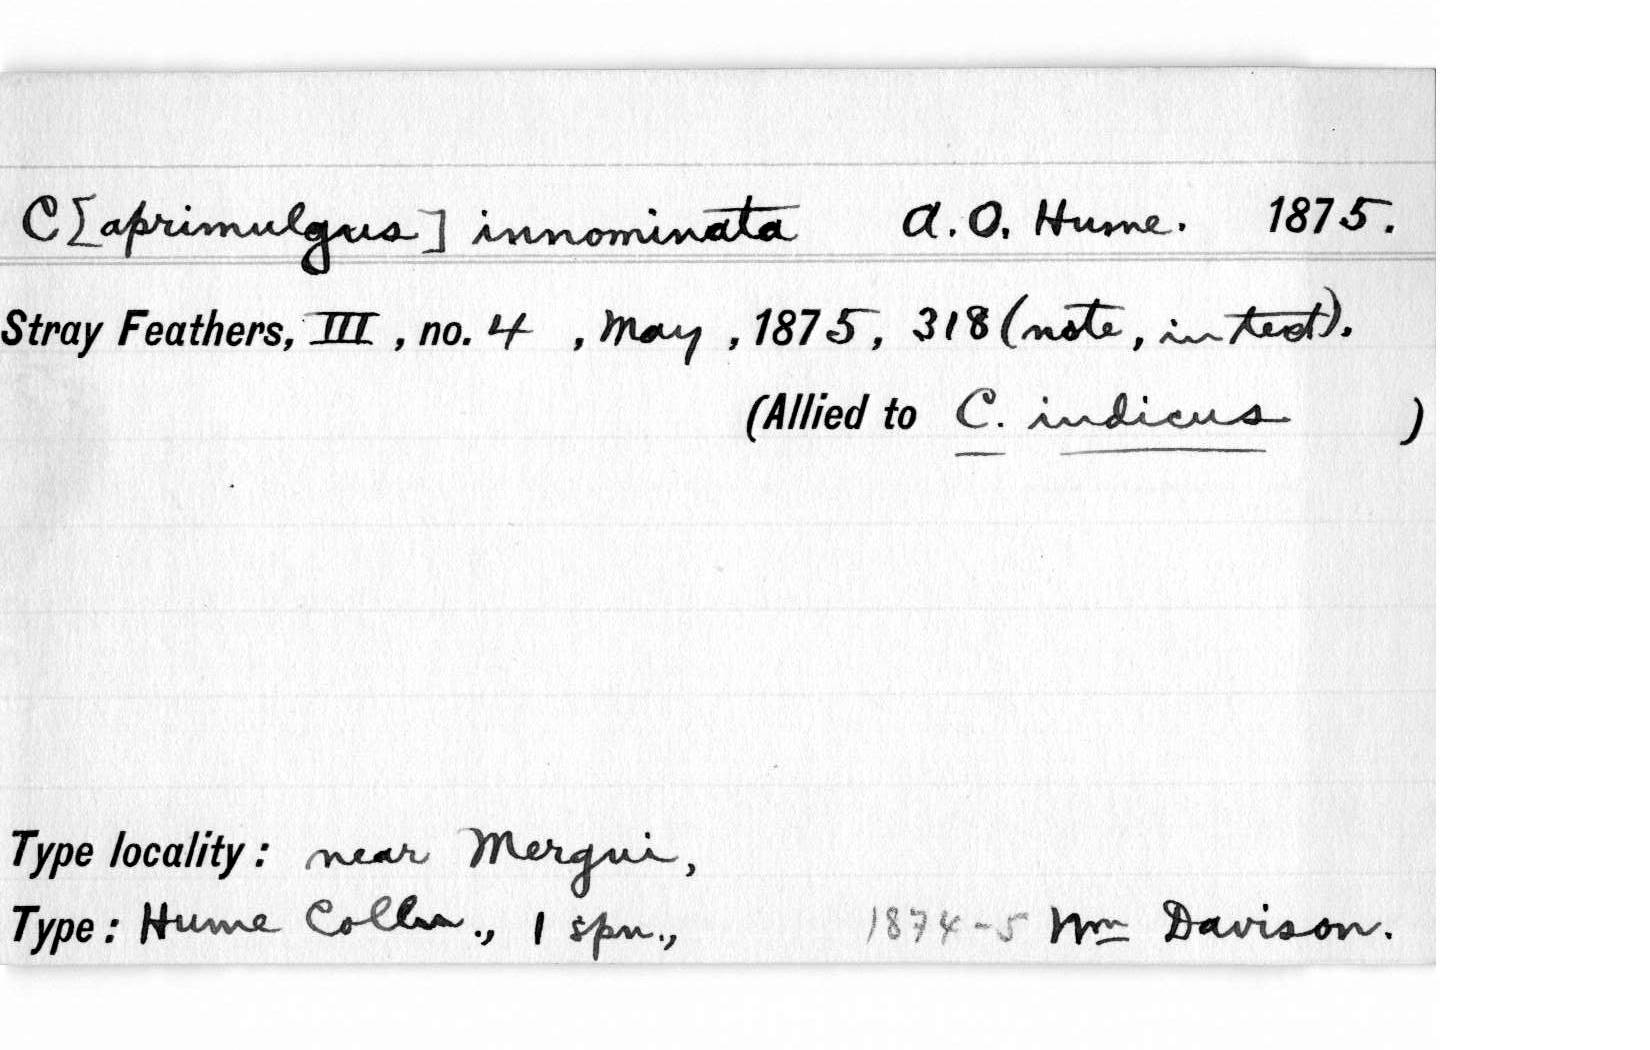 C[aprimulgus] innominata A. O. Hume. 1875.
Stray Feathers, III, no. 4, May, 1875, 318 (note, in text).
(Allied to C. indicus)
Type locality: near Mergui,
Type: Hume Colln., 1 spn., 1874-5 Wm Davison.